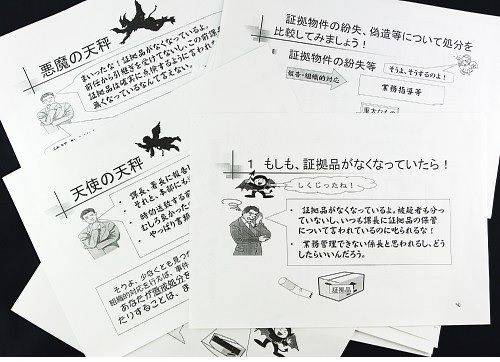 悪魔の天秤
まいったな！証拠品がなくなっているよ。
前任から引継ぎを受けてないし、この前課
証拠品は確実に点検するように言われ
無くなっているなんて言えない。
証拠物件の紛失、偽造等について処分を
比較してみましょう！
証拠物件の紛失等
そうよ、そうするのよ！
報告・組織的対応
業務指導等
天使の天秤
課長、署長に報告
されど、本部にも
時効送致する前
むしろ良かった
やっぱり言
そうよ、少なくとも見つ
組織的対応を行えば、事件
あなたが懲戒処分を
たりすることは、ま
1 もしも、証拠品がなくなっていたら！
しくじったね！
• 証拠品がなくなっているよ。被疑者も分っ
ていないし、いつも課長に証拠品の保管
について言われているのに叱られるな！
• 業務管理できない係長と思われるし、どう
したらいいんだろう。
証拠品